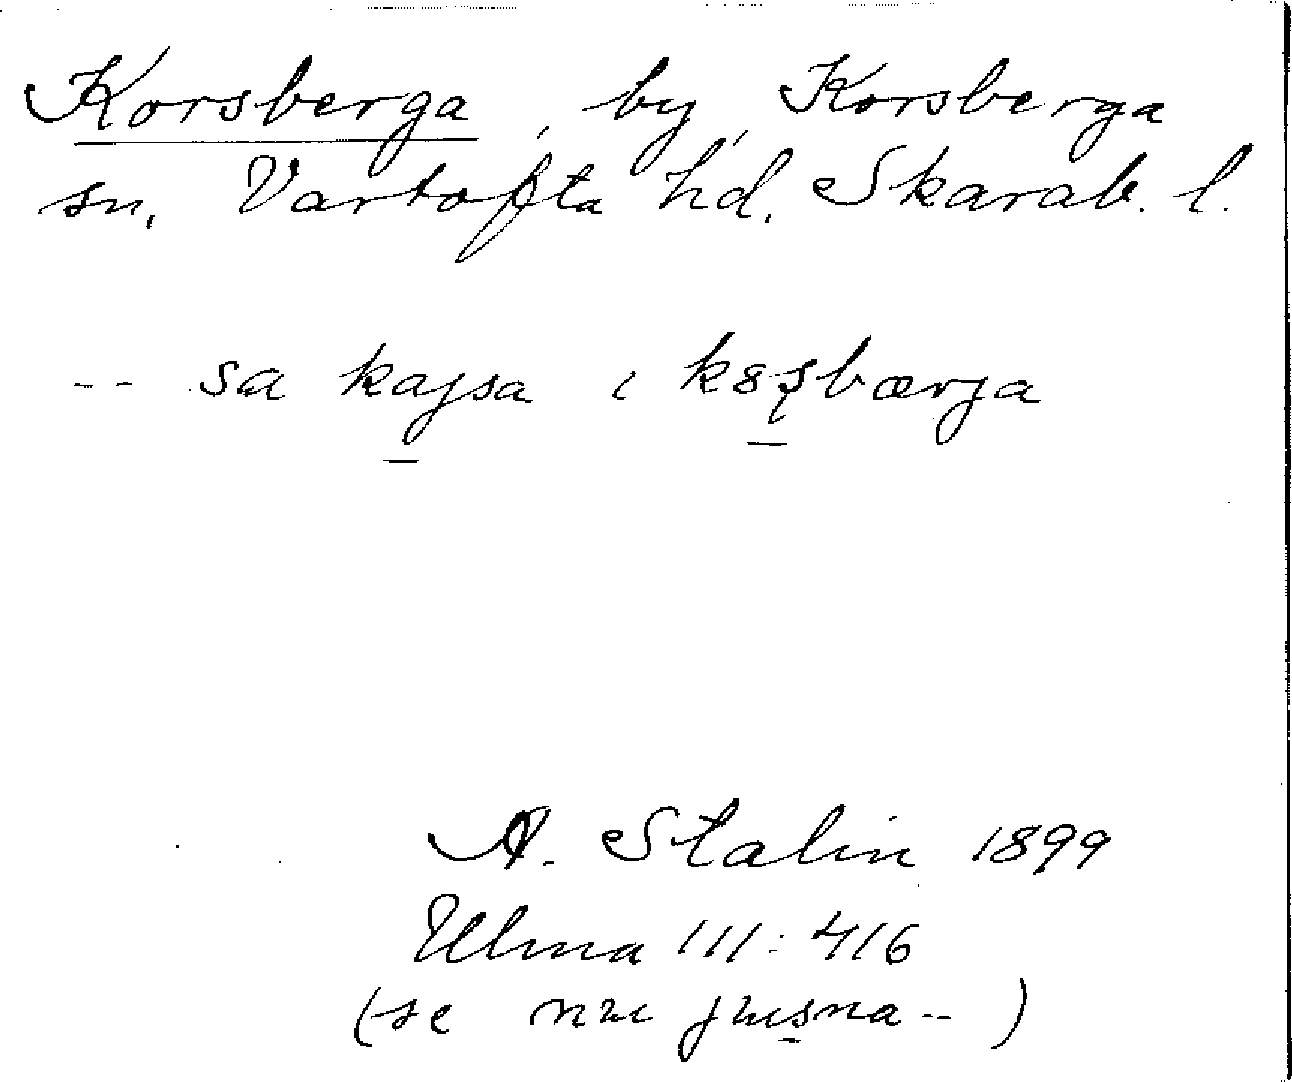 Korsberga, by, Korsberga
sn, Vartofta hd. Skarab. l.
-- sa kajsa i k8şbærja
A. Stalin 1899
Ulma 111:416
(se --)